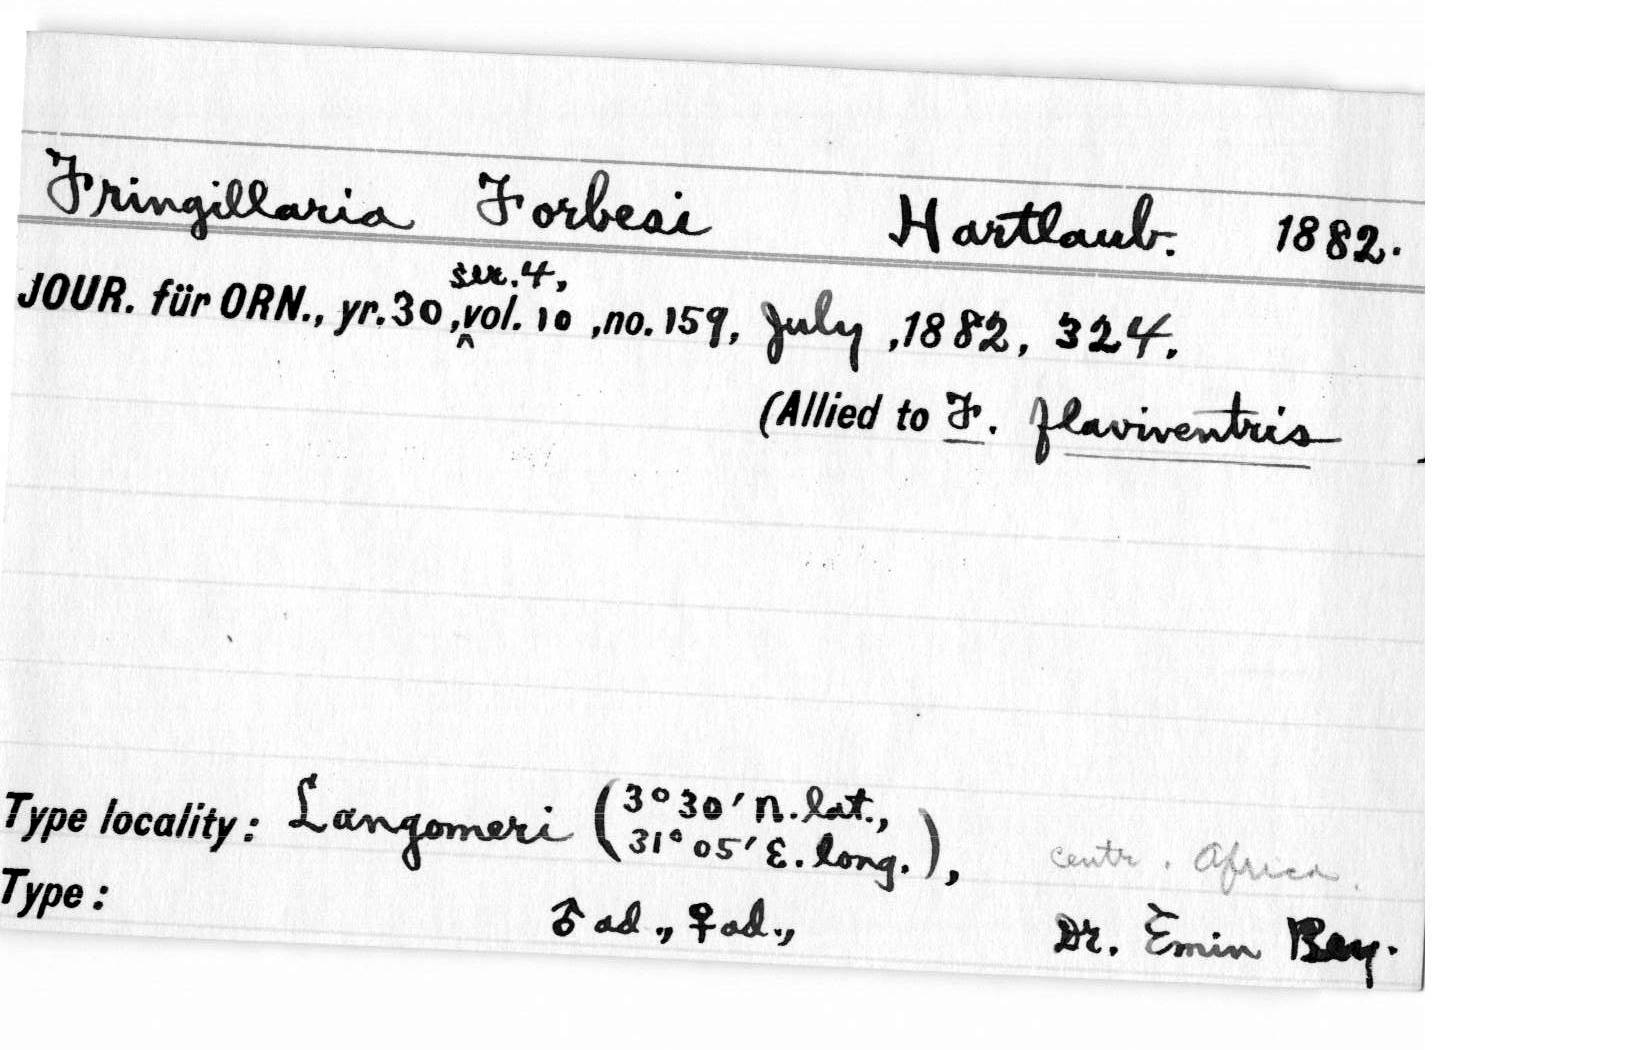 Fringillaria Forbesi Hartlaub. 1882.
JOUR. für ORN., yr. 30, ser. 4, vol. 10, no. 159, July, 1882, 324.
(Allied to F. flaviventris
Type locality: Langomeri (3° 30' N. lat., 31° 05' E. long.), centr. Africa.
Type: ♂ ad., ♀ ad., Dr. Emin Bey.